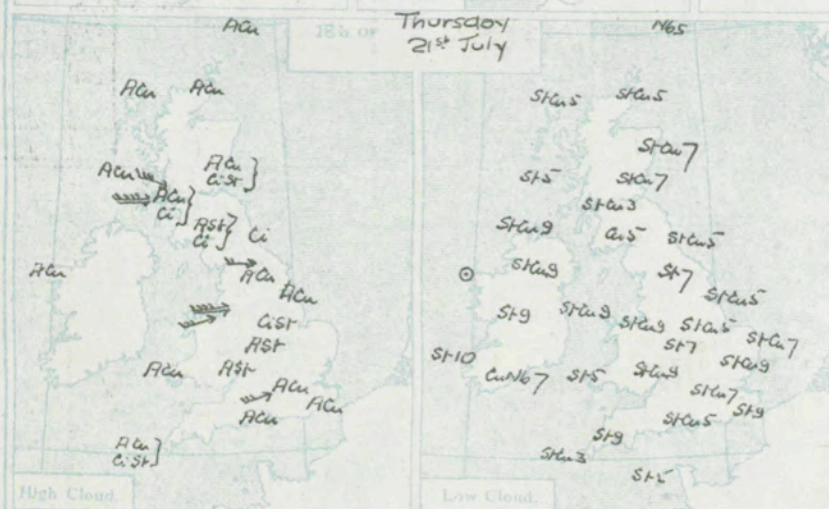 18h or Thursday
21st July
ACu
ACu ACu
ACu
CiSt
ACu
ACu
Ci
ASt
Ci
Ci
ACu
ACu
ACu
CiSt
ASt
ACu
ASt
ACu
ACu
ACu
ACu
CiSt
High Cloud.
Nb5
StCu5 StCu5
StCu7
St5 StCu7
StCu3
StCu9 Cu5 StCu5
StCu9 St7
StCu5
St9 StCu9 StCu9 StCu5 StCu7
St7
St10 StCu9
CuNb7 St5 StCu9
StCu7
StCu5 St9
St9
StCu3
St5
Low Cloud.